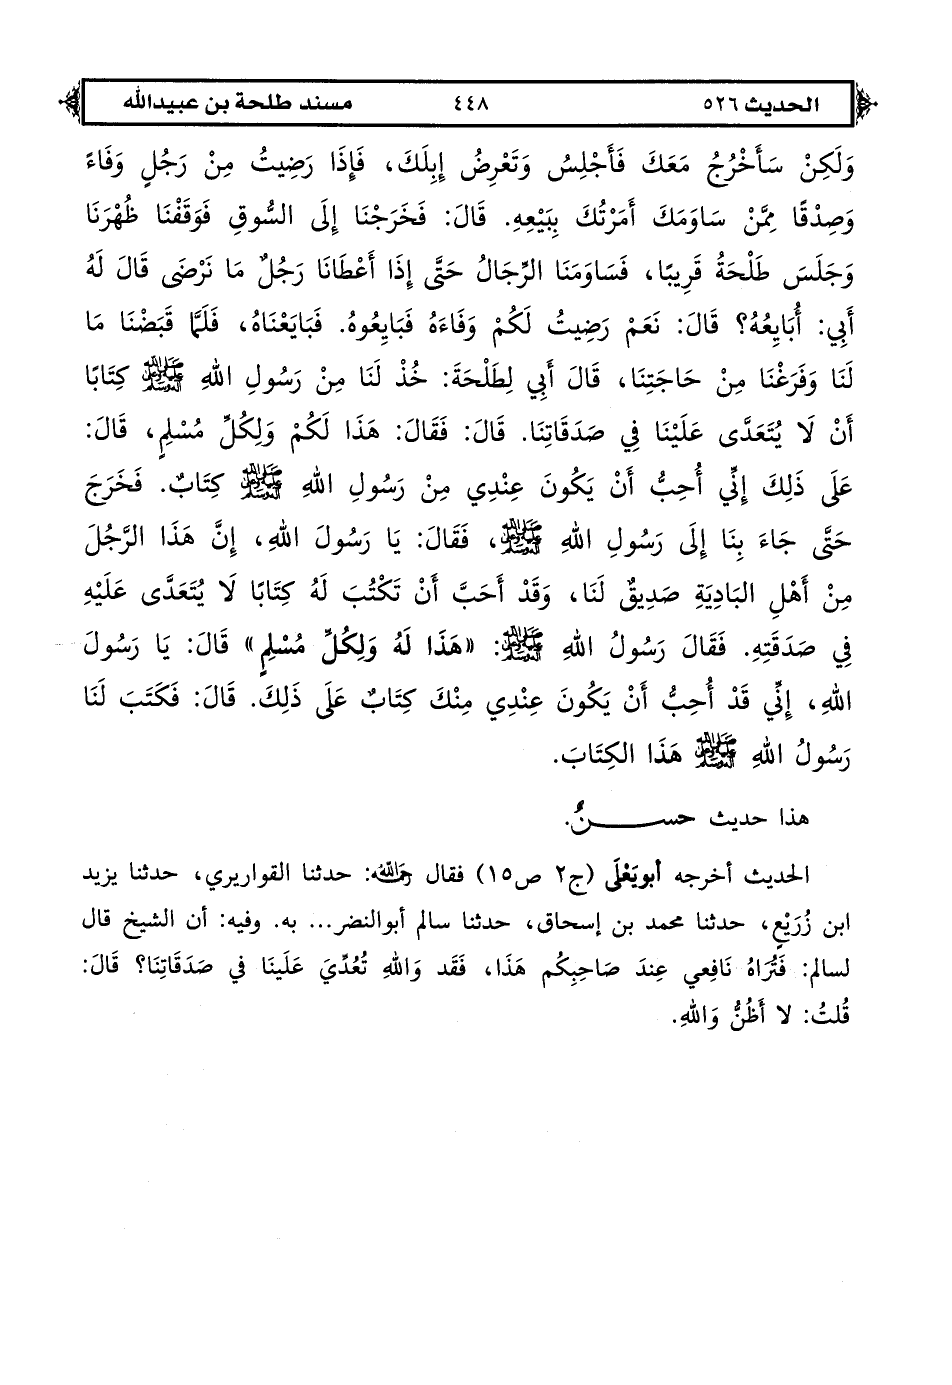 الحديث ٥٢٦ ٤٤٨ مسند طلحة بن عبيدالله
وَلَكِنْ سَأَخْرُجُ مَعَكَ فَأَجْلِسُ وَتَعْرِضُ إِبِلَكَ، فَإِذَا رَضِيتُ مِنْ رَجُلٍ وَفَاءً
وَصِدْقًا مِمَّنْ سَاوَمَكَ أَمَرْتُكَ بِبَيْعِهِ. قَالَ: فَخَرَجْنَا إِلَى السُّوقِ فَوَقَفْنَا ظُهْرَنَا
وَجَلَسَ طَلْحَةُ قَرِيبًا، فَسَاوَمَنَا الرِّجَالُ حَتَّى إِذَا أَعْطَانَا رَجُلٌ مَا نَرْضَى قَالَ لَهُ
أَبِي: أُبَايِعُهُ؟ قَالَ: نَعَمْ رَضِيتُ لَكُمْ وَفَاءَهُ فَبَايِعُوهُ. فَبَايَعْنَاهُ، فَلَمَّا قَبَضْنَا مَا
لَنَا وَفَرَغْنَا مِنْ حَاجَتِنَا، قَالَ أَبِي لِطَلْحَةَ: خُذْ لَنَا مِنْ رَسُولِ اللهِ ﷺ كِتَابًا
أَنْ لَا يُتَعَدَّى عَلَيْنَا فِي صَدَقَاتِنَا. قَالَ: فَقَالَ: هَذَا لَكُمْ وَلِكُلِّ مُسْلِمٍ، قَالَ:
عَلَى ذَلِكَ إِنِّي أُحِبُّ أَنْ يَكُونَ عِنْدِي مِنْ رَسُولِ اللهِ ﷺ كِتَابٌ. فَخَرَجَ
حَتَّى جَاءَ بِنَا إِلَى رَسُولِ اللهِ ﷺ، فَقَالَ: يَا رَسُولَ اللهِ، إِنَّ هَذَا الرَّجُلَ
مِنْ أَهْلِ البَادِيَةِ صَدِيقٌ لَنَا، وَقَدْ أَحَبَّ أَنْ تَكْتُبَ لَهُ كِتَابًا لَا يُتَعَدَّى عَلَيْهِ
فِي صَدَقَتِهِ. فَقَالَ رَسُولُ اللهِ ﷺ: «هَذَا لَهُ وَلِكُلِّ مُسْلِمٍ» قَالَ: يَا رَسُولَ
اللهِ، إِنِّي قَدْ أُحِبُّ أَنْ يَكُونَ عِنْدِي مِنْكَ كِتَابٌ عَلَى ذَلِكَ. قَالَ: فَكَتَبَ لَنَا
رَسُولُ اللهِ ﷺ هَذَا الكِتَابَ.
هذا حديث حسنٌ.
الحديث أخرجه أبويَعْلَى (ج٢ ص١٥) فقال رحمه الله: حدثنا القواريري، حدثنا يزيد
ابن زُرَيْعٍ، حدثنا محمد بن إسحاق، حدثنا سالم أبوالنضر... به. وفيه: أن الشيخ قال
لسالم: فَتُرَاهُ نَافِعِي عِندَ صَاحِبِكُم هَذَا، فَقَد وَاللهِ تُعُدِّيَ عَلَينَا فِي صَدَقَاتِنَا؟ قَالَ:
قُلتُ: لا أَظُنُّ وَاللهِ.